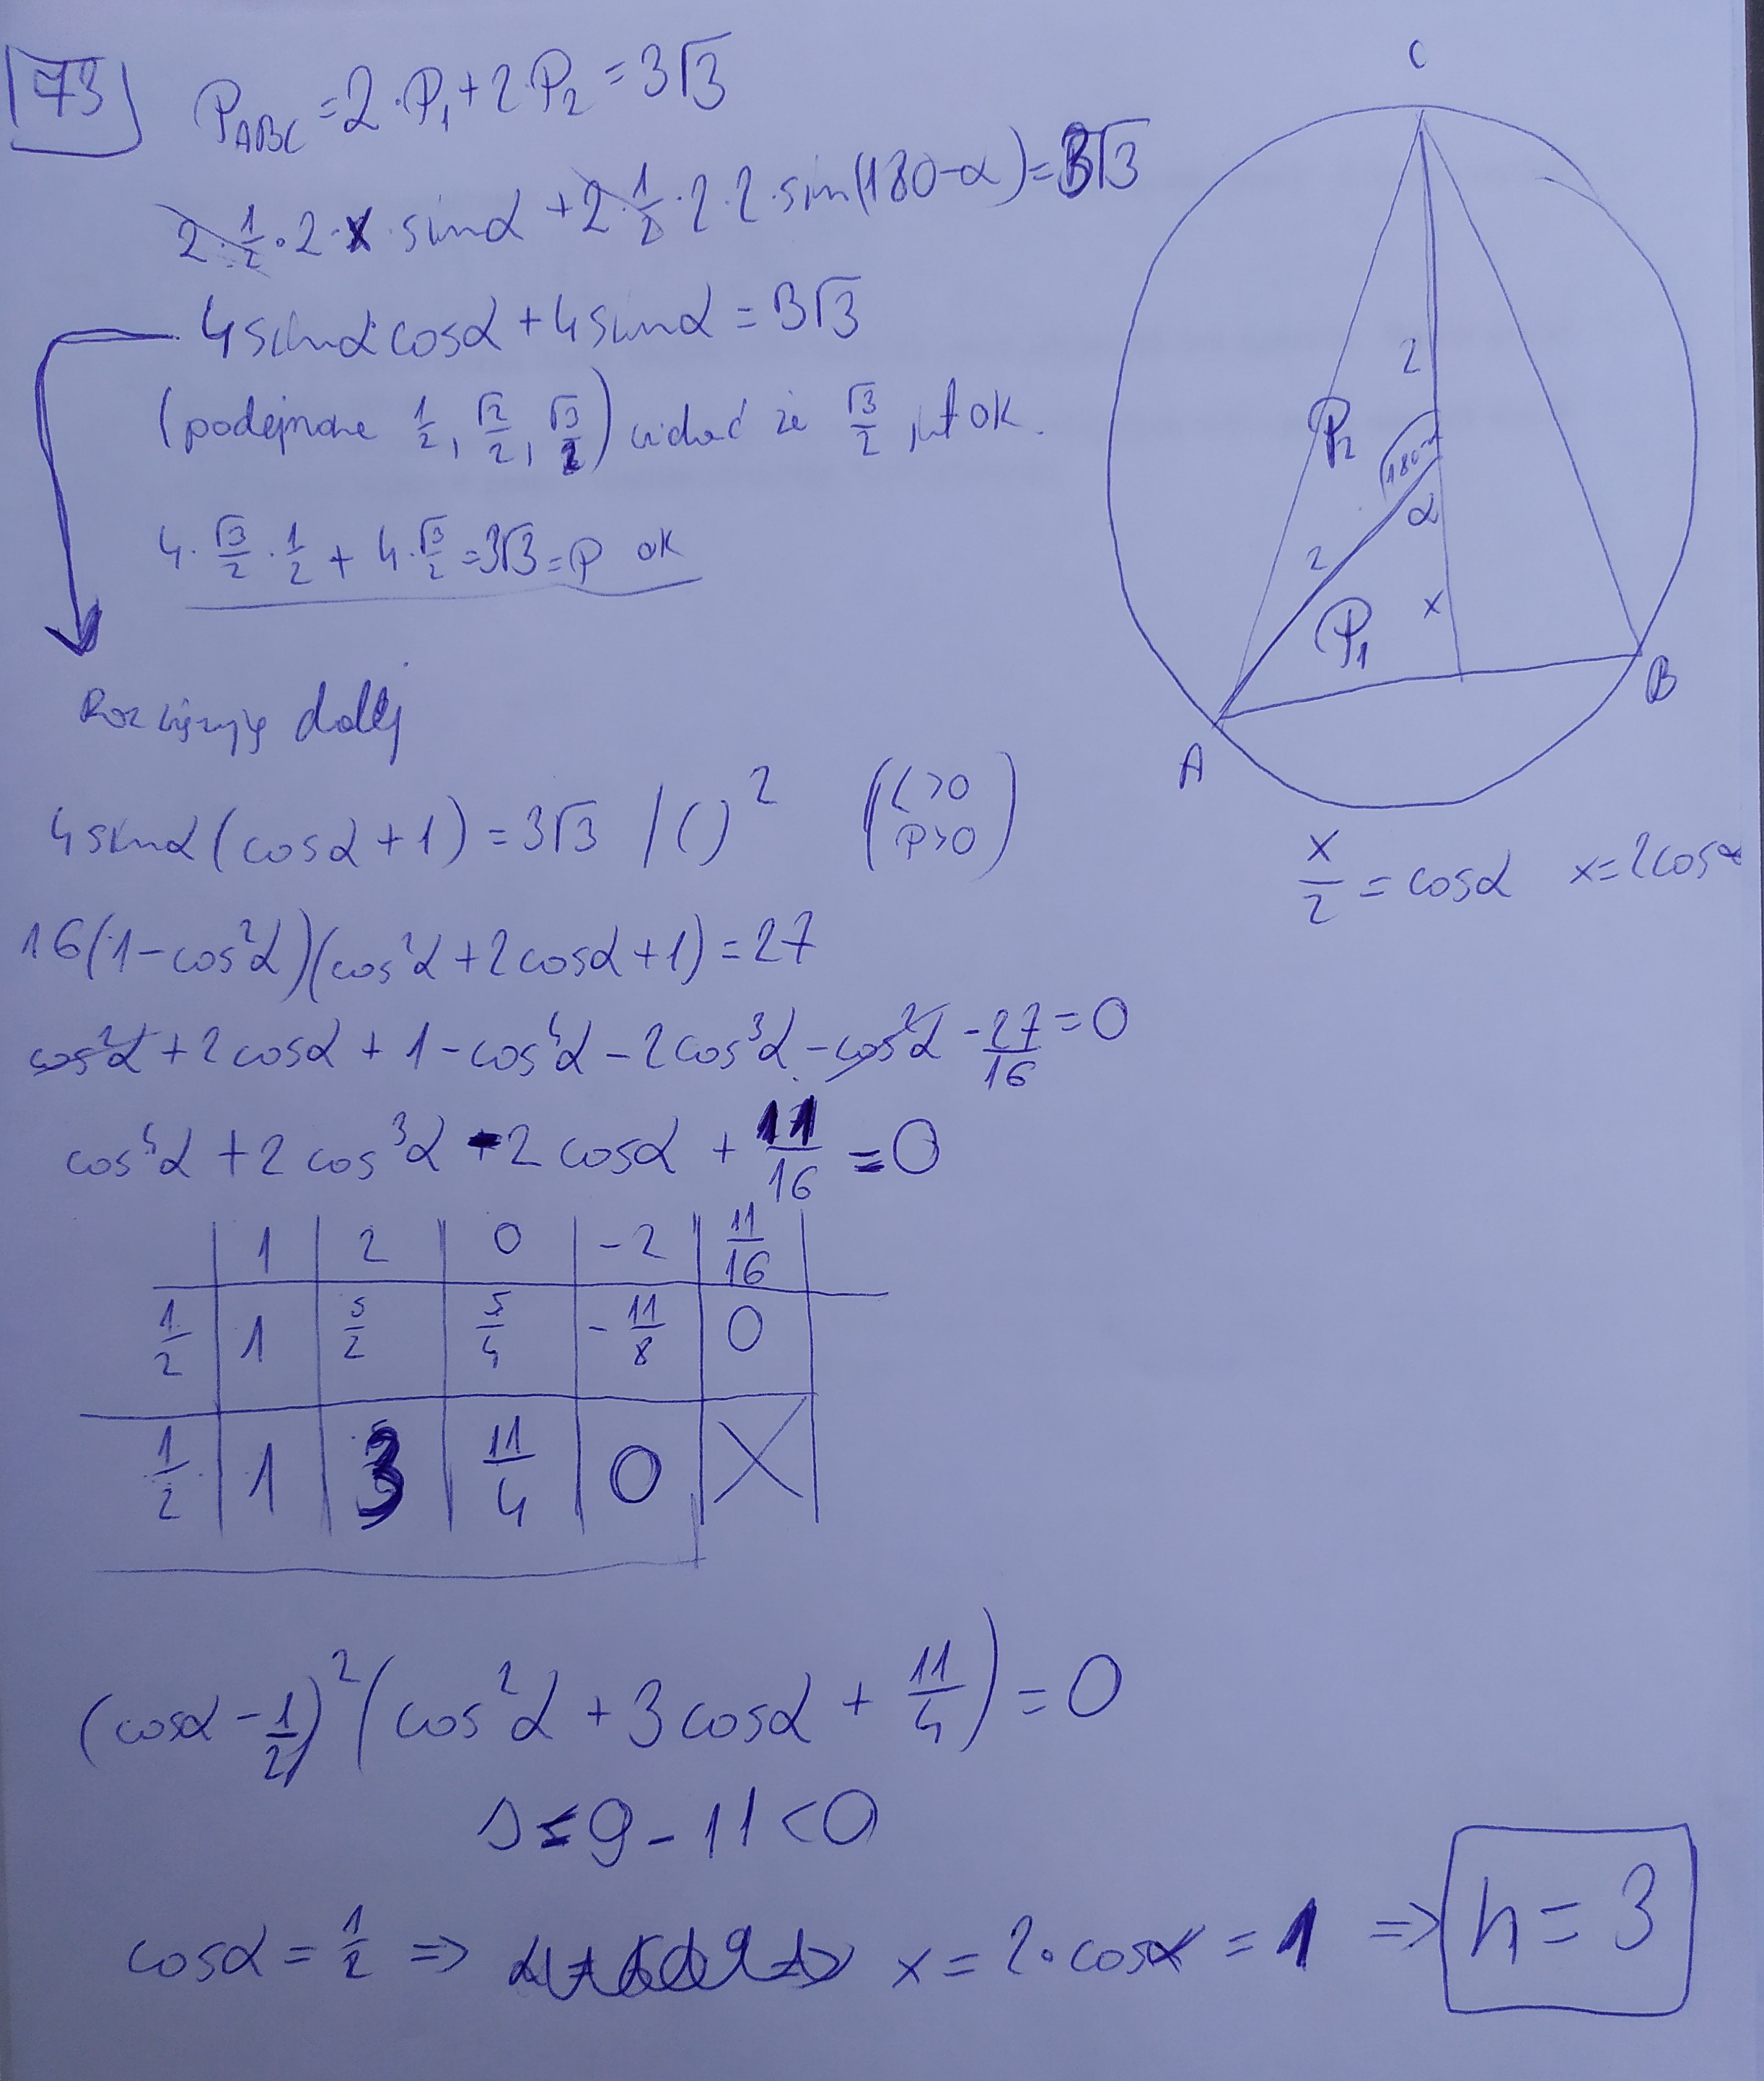 73
P_ABC = 2·P₁ + 2·P₂ = 3√3
2·1/2·2·x·sinα + 2·1/2·2·2·sin(180-α) = 3√3
4sinα·cosα + 4sinα = 3√3
(podejrzane 1/2, √2/2, √3/2) widać że √3/2 jest ok.
4·√3/2·1/2 + 4·√3/2 = 3√3 = P ok
Rozwiązuję dalej
4sinα(cosα + 1) = 3√3 /( )² (L>0 P>0)
16(1-cos²α)(cos²α + 2cosα + 1) = 27
cos²α + 2cosα + 1 - cos⁴α - 2cos³α - cos²α - 27/16 = 0
cos⁴α + 2cos³α - 2cosα + 11/16 = 0
1 2 0 -2 11/16
1/2 1 5/2 5/4 -11/8 0
1/2 1 3 11/4 0 X
(cosα - 1/2)²(cos²α + 3cosα + 11/4) = 0
Δ = 9 - 11 < 0
cosα = 1/2 ⇒ x = 2·cosα = 1 ⇒ h = 3
C
2
P₂
180-α
α
2
x
P₁
B
A
x/2 = cosα x = 2cosα